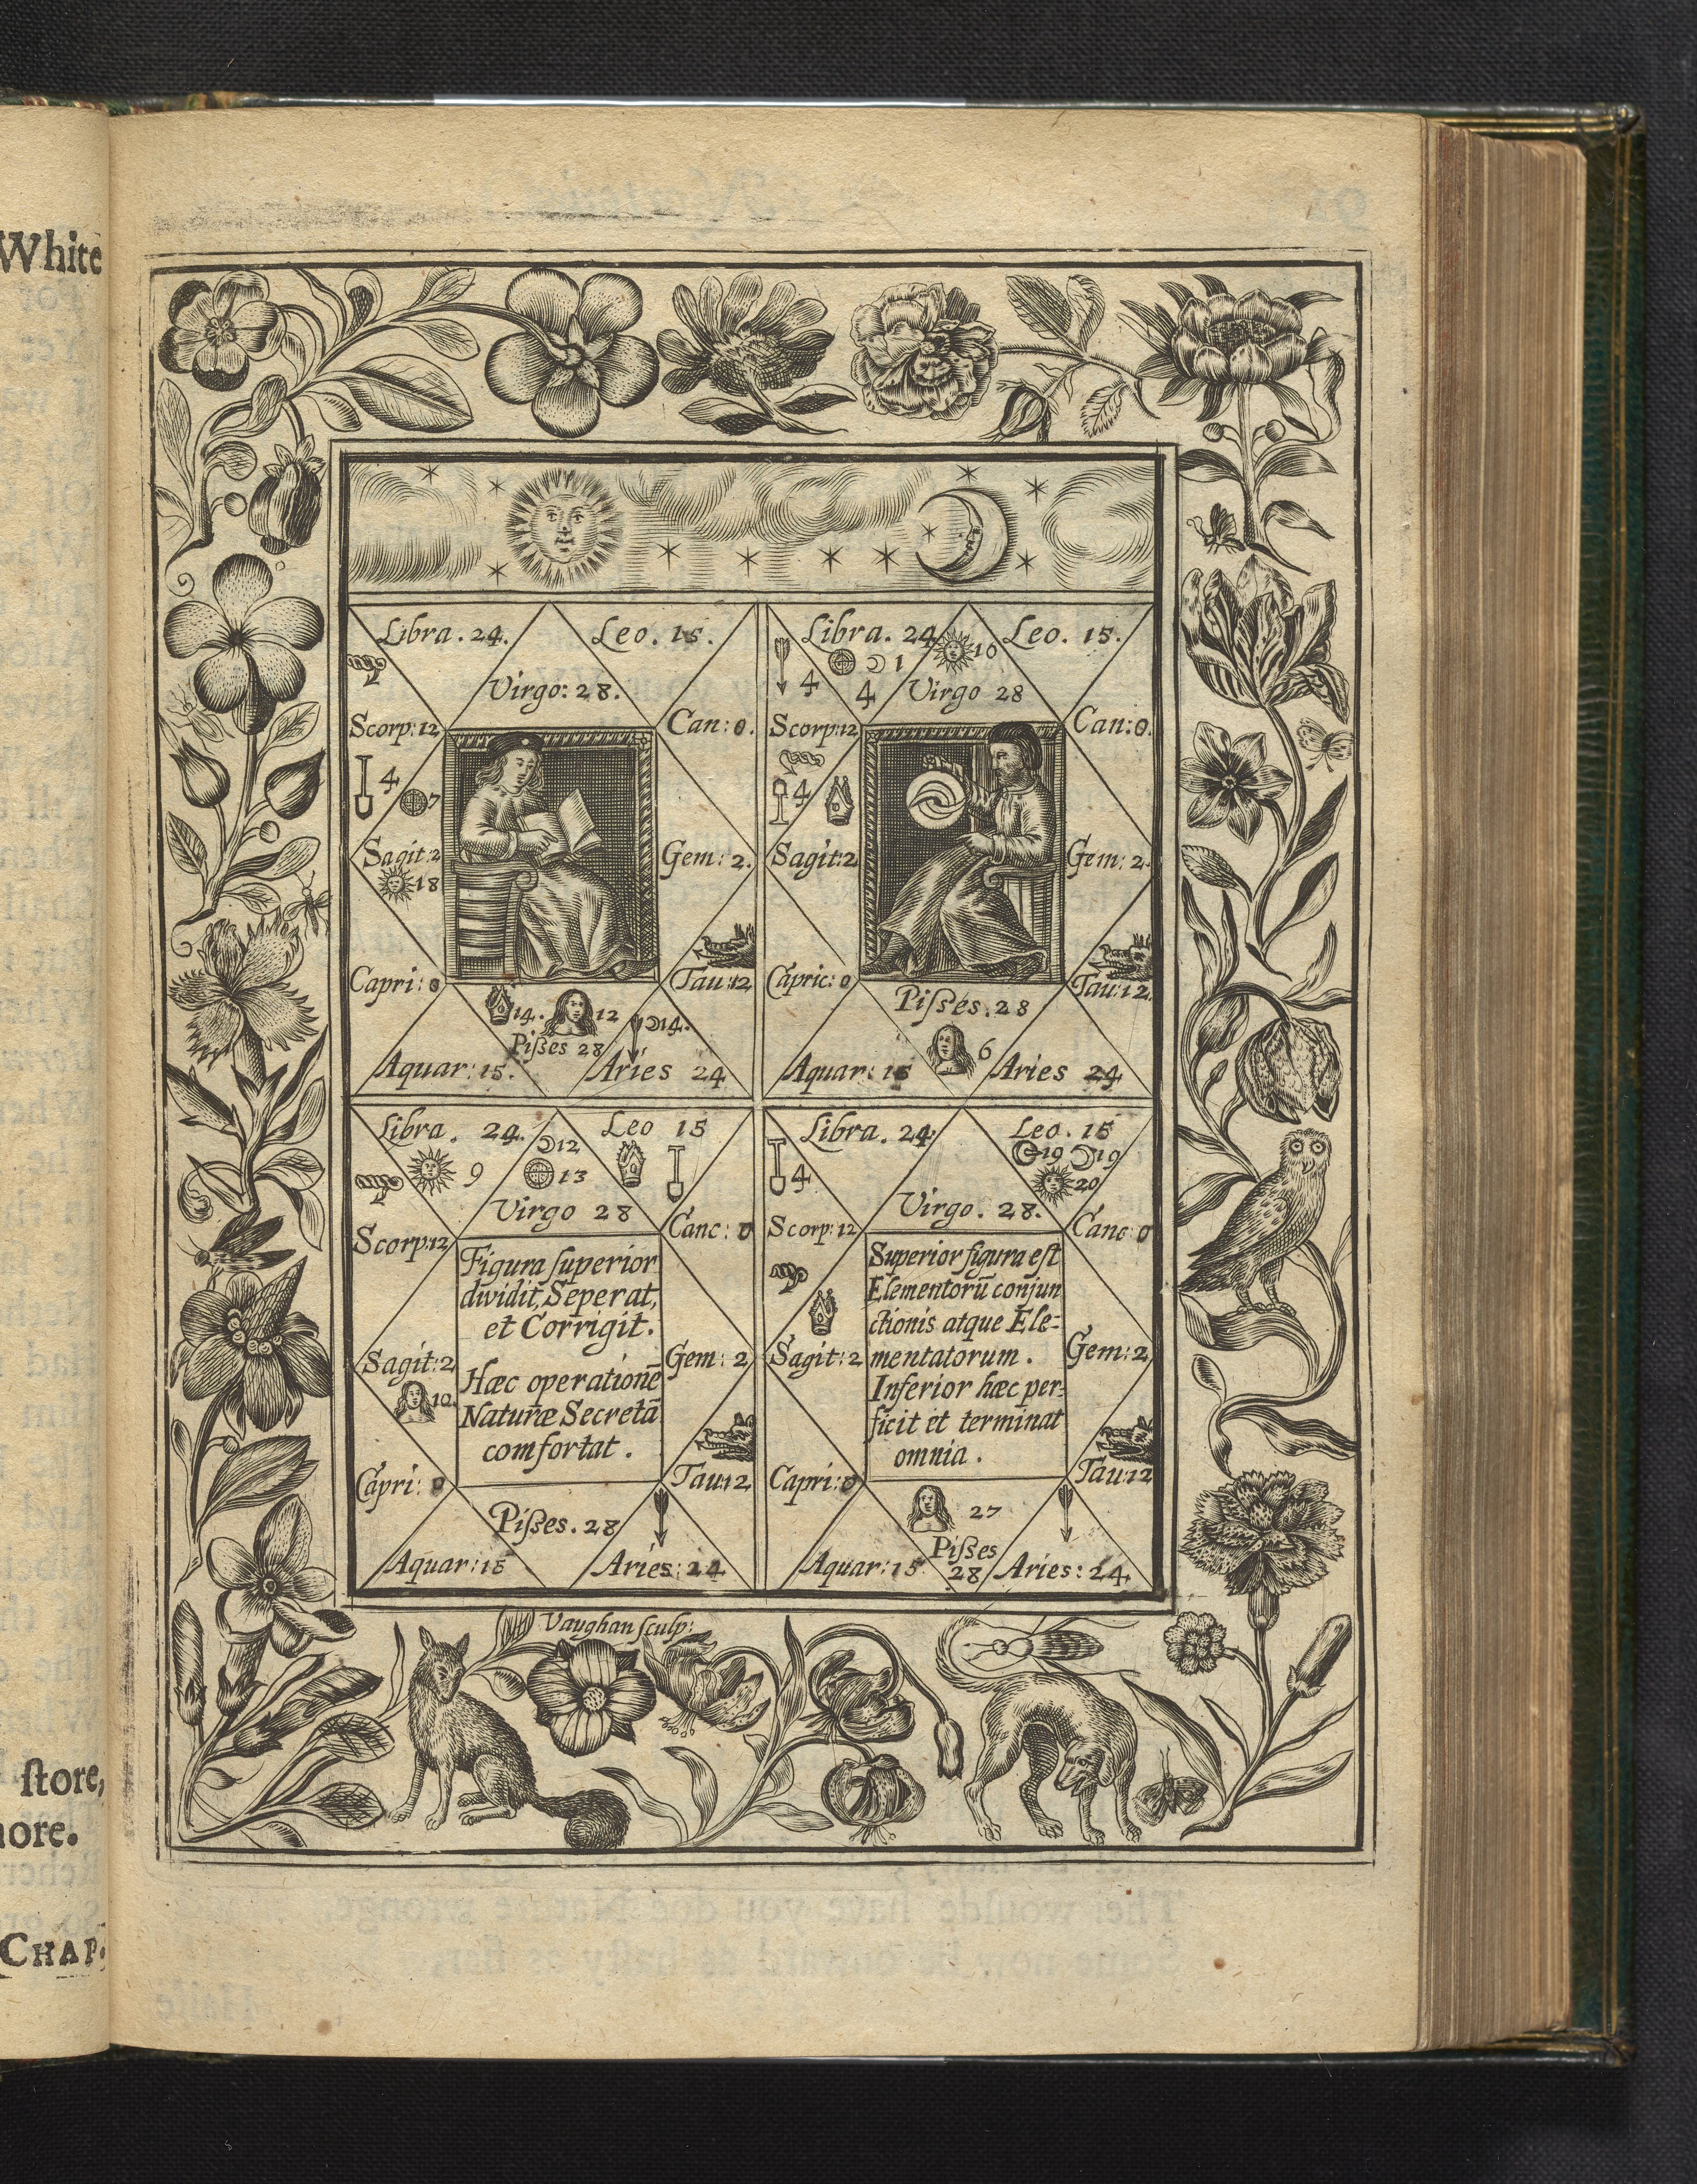 White
ſtore,
ore.
CHAP.
Libra. 24.
Leo. 15.
Virgo: 28.
Scorp: 12
Can: 0.
4
7
Sagit: 2
Gem: 2.
18
Capri: 0
Tau: 12
14.
12
14.
Piſses 28
Aquar: 15.
Aries 24
Libra. 24
10
Leo. 15.
1
4
4
Virgo 28
Scorp: 12
Can: 0.
4
Sagit: 2
Gem: 2.
Capric: 0
Tau: 12.
Piſses. 28
6
Aquar: 15
Aries 24
Libra. 24.
12
Leo 15
9
13
Virgo 28
Scorp: 12
Canc: 0
Figura ſuperior
dividit, Seperat,
et Corrigit.
Sagit: 2
Gem: 2
Hæc operationē
Naturæ Secretā
comfortat.
10.
Capri: 0
Tau: 12
Piſses. 28
Aquar: 15
Aries: 24
Libra. 24
Leo. 15
19
19
4
20
Virgo. 28.
Scorp: 12
Canc: 0
Superior figura eſt
Elementorū conjun
ctionis atque Ele=
Sagit: 2
mentatorum.
Gem: 2
Inferior hæc per=
ficit et terminat
omnia.
Capri: 0
Tau: 12
27
Piſses
28
Aquar: 15
Aries: 24
Vaughan ſculp: